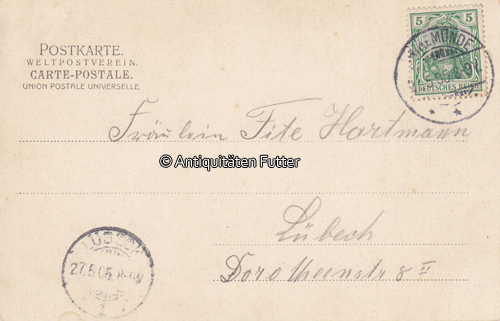 POSTKARTE.
WELTPOSTVEREIN.
CARTE-POSTALE.
UNION POSTALE UNIVERSELLE.
5 5
DEUTSCHES REICH
Fräulein Fite Hartmann
© Antiquitäten Futter
Lübeck
Dorotheenstr 8 II
LÜBECK
27.5.05.
1